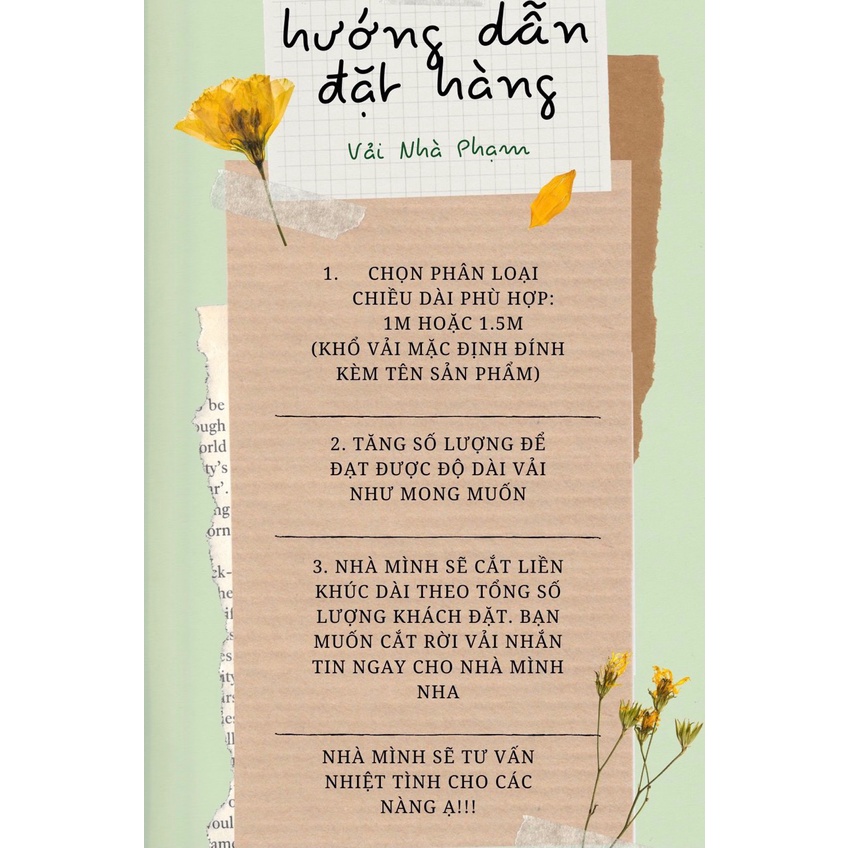 hướng dẫn
đặt hàng
Vải Nhà Phạm
1. CHỌN PHÂN LOẠI
CHIỀU DÀI PHÙ HỢP:
1M HOẶC 1.5M
(KHỔ VẢI MẶC ĐỊNH ĐÍNH
KÈM TÊN SẢN PHẨM)
2. TĂNG SỐ LƯỢNG ĐỂ
ĐẠT ĐƯỢC ĐỘ DÀI VẢI
NHƯ MONG MUỐN
3. NHÀ MÌNH SẼ CẮT LIỀN
KHÚC DÀI THEO TỔNG SỐ
LƯỢNG KHÁCH ĐẶT. BẠN
MUỐN CẮT RỜI VẢI NHẮN
TIN NGAY CHO NHÀ MÌNH
NHA
NHÀ MÌNH SẼ TƯ VẤN
NHIỆT TÌNH CHO CÁC
NÀNG Ạ!!!
be